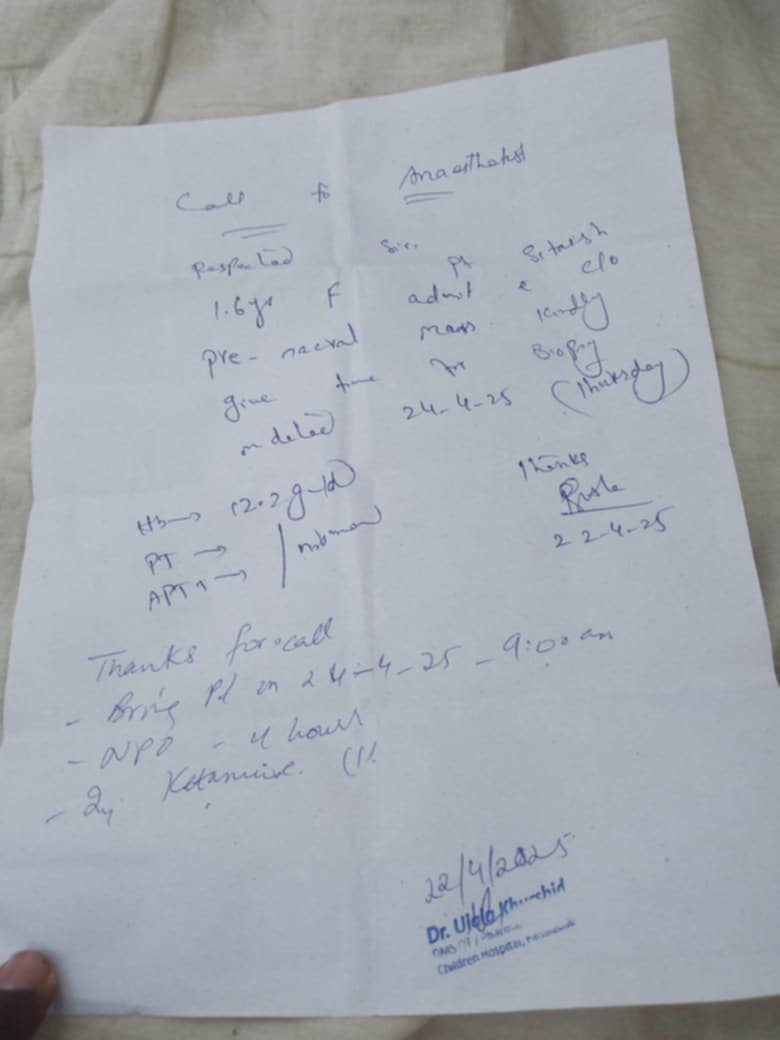 Call to Anaesthetist
Respected Sir,
Pt
1.6 yr F admit c c/o
Pre-sacral mass. Kindly
give time for Biopsy
on dated 24-4-25 (Thursday)
Thanks
22-4-25
Hb → 12.2 g/dl
PT →
APTT →
Thanks for call
- Bring Pt on 24-4-25 - 9:00 am
- NPO - 4 hours
- Inj Ketamine. (1)
22/4/2025
Dr. Khurshid
Children Hospital,